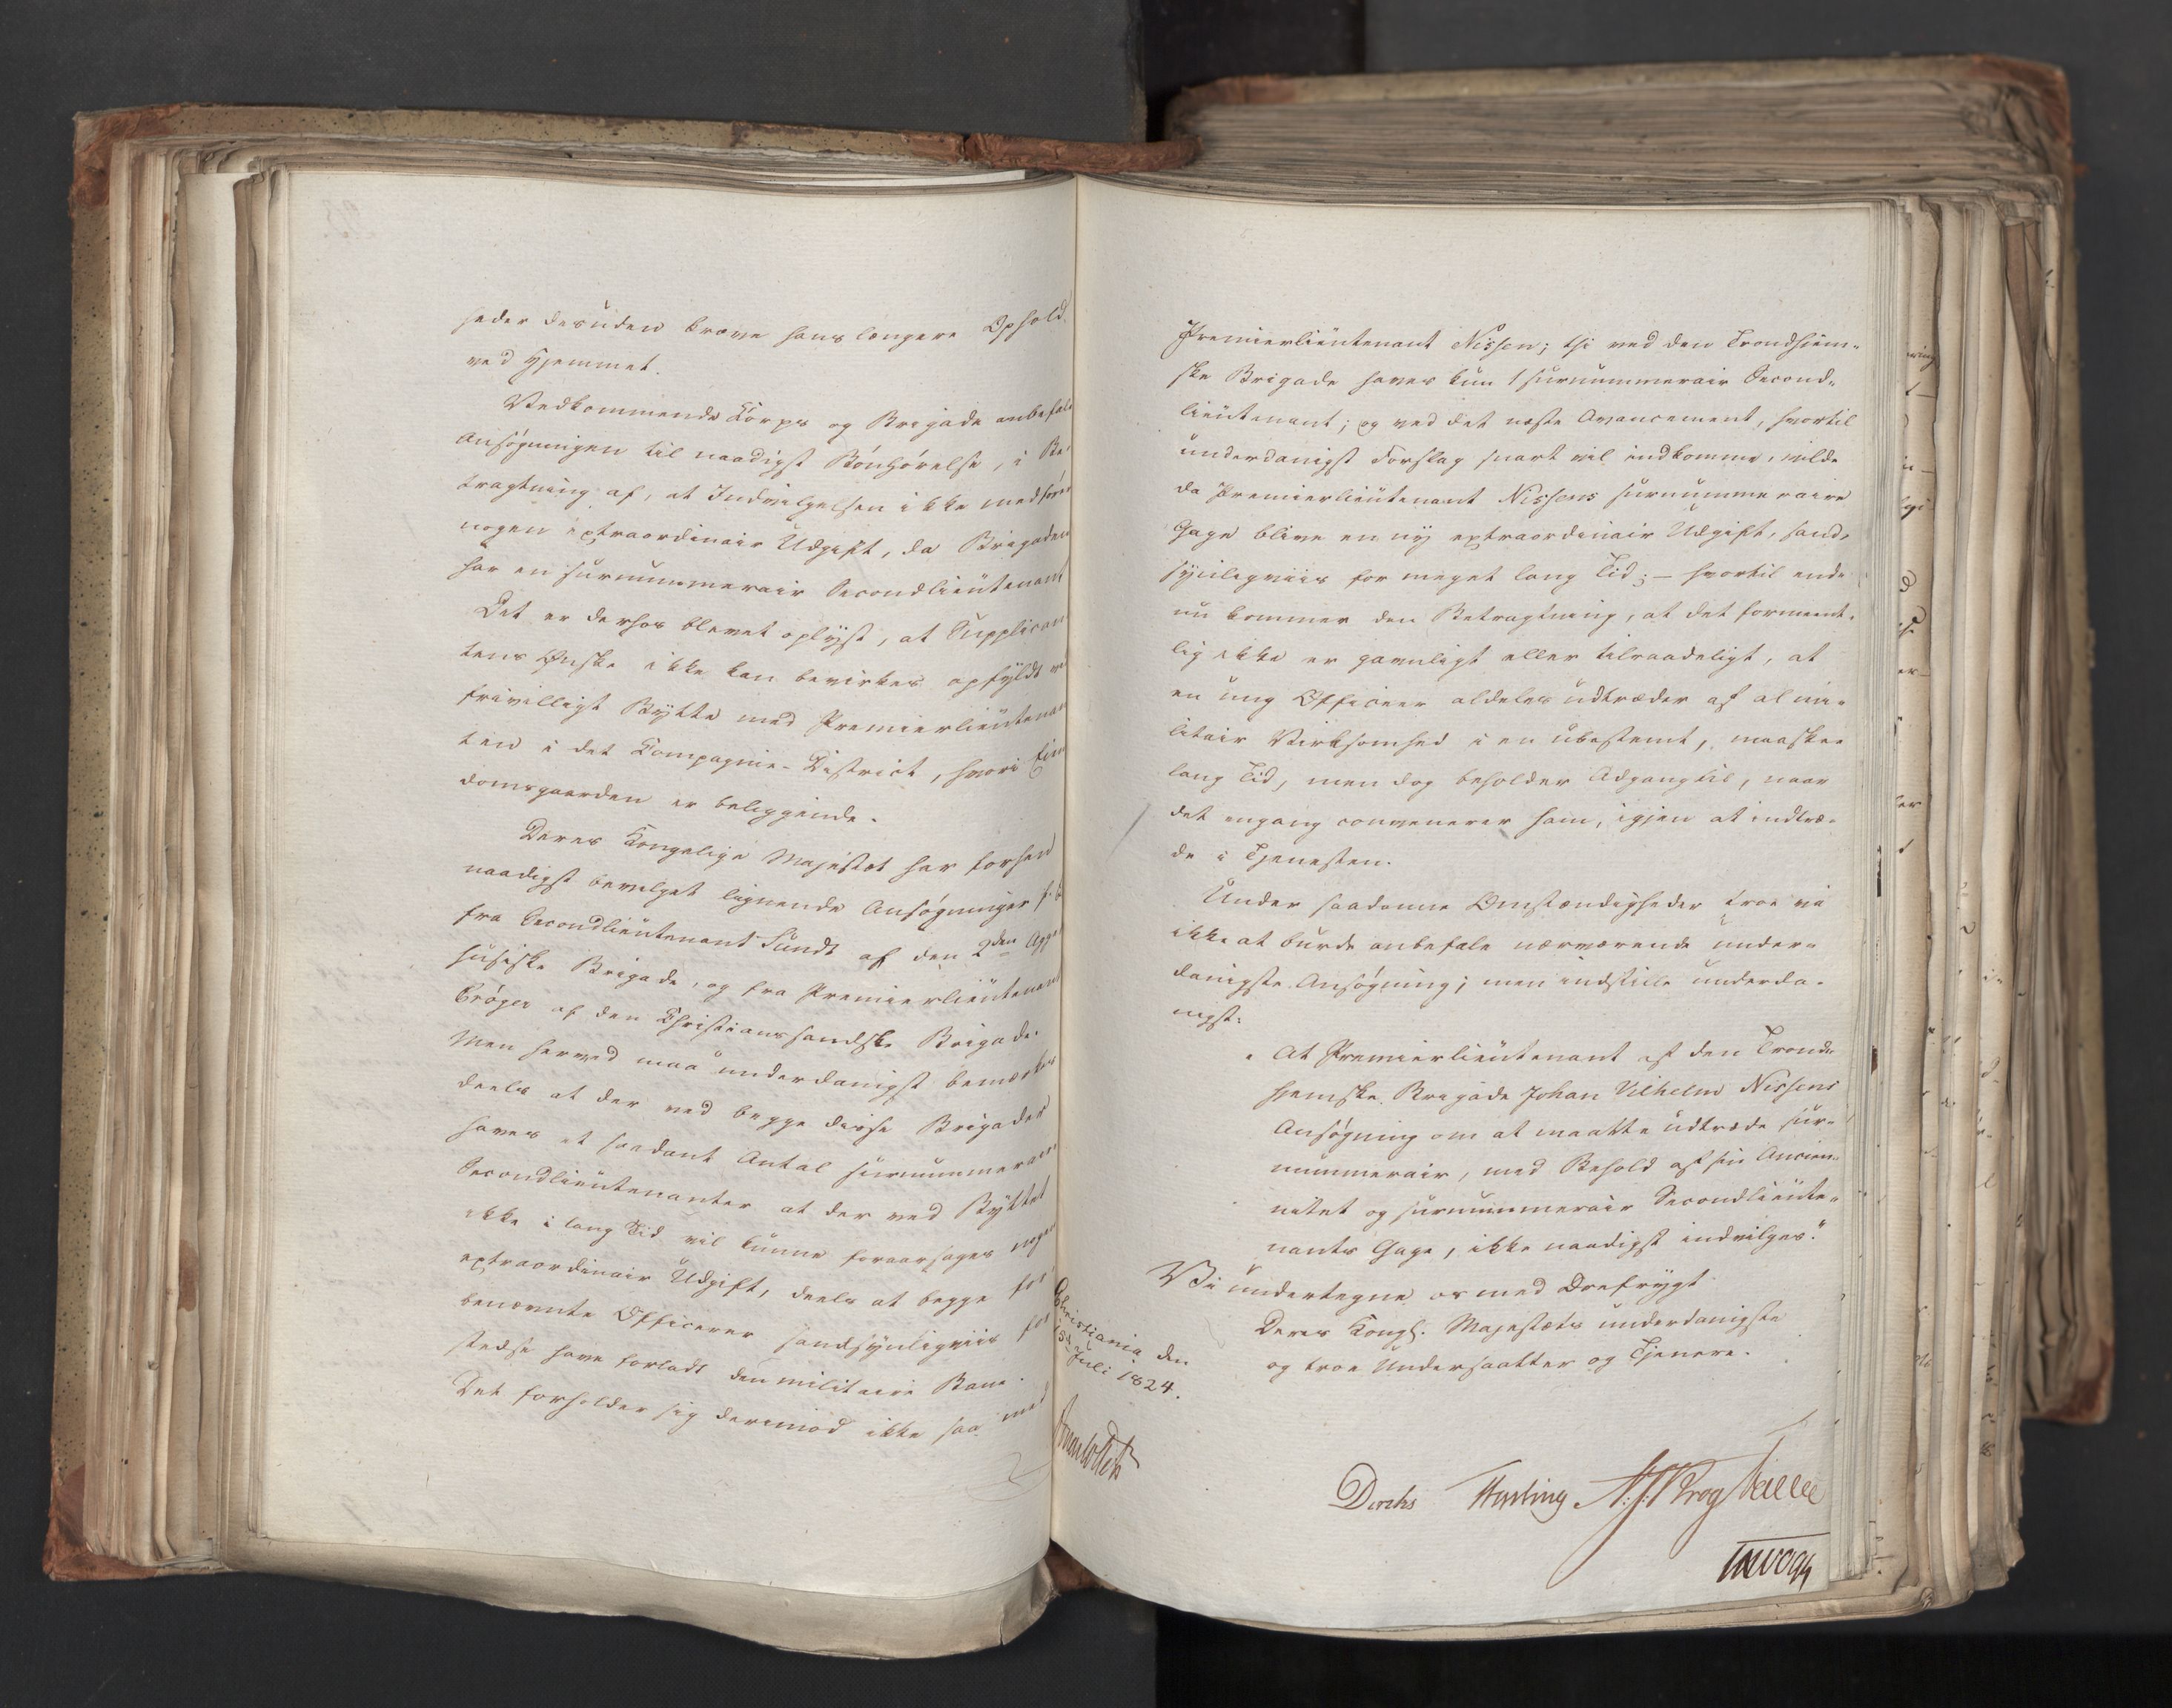 heder desuden kræve hans længere Ophold
ved Hjemmet.
Vedkommende Corps og Brigade anbefale
Ansøgningen til naadigst Bønhørelse, i Be-
tragtning af, at Indvilgelsen ikke medfører
nogen extraordinair Udgift, da Brigaden
har en surnummerair Secondlieutenant
Det er derhos blevet oplyst, at Supplican-
tens Ønske ikke kan bevirkes opfyldt ved
frivilligt Bytte med Premierlieutenan-
ten i det Compagnie-District, hvori Eien-
domsgaarden er beliggende.
Deres Kongelige Majestæt har forhen
naadigst bevilget lignende Ansøgninger f. E.
fra Secondlieutenant Sundt af den 2den Agger-
husiske Brigade, og fra Premierlieutenant
Crøger af den Christianssandske Brigade.
Men herved maa underdanigst bemærkes
deels at der ved begge disse Brigader
haves et saadant Antal surnummeraire
Secondlieutenanter at der ved Byttet
ikke i lang Tid vil kunne foraarsages nogen
extraordinair Udgift, deels at begge for-
benævnte Officerer sandsynligviis for
stedse have forladt den militaire Bane.
Det forholder sig derimod ikke saa med
Premierlieutenant Nissen; thi ved den Trondhjem-
ske Brigade haves kun 1 surnummerair Second-
lieutenant; og ved det næste Avancement, hvortil
underdanigst Forslag snart vil indkomme, vilde
da Premierlieutenant Nissens surnummeraire
Gage blive en ny extraordinair Udgift, sand-
synligviis for meget lang Tid; — hvortil end-
nu kommer den Betragtning, at det forment-
lig ikke er gavnligt eller tilraadeligt, at
en ung Officeer aldeles udtræder af al mi-
litair Virksomhed i en ubestemt, maaskee
lang Tid, men dog beholder Adgang til, naar
det engang convenerer ham, igjen at indtræ-
de i Tjenesten.
Under saadanne Omstændigheder troe vi
ikke at burde anbefale nærværende under-
danigste Ansøgning; men indstille underda-
nigst:
"At Premierlieutenant af den Trond-
hjemske Brigade Johan Vilhelm Nissens
Ansøgning om at maatte udtræde sur-
nummerair, med Behold af sin Ancien-
nitet og surnummerair Secondlieute-
nants Gage, ikke naadigst indvilges."
Vi undertegne os med Ærefrygt
Deres Kongl. Majestæts underdanigste
og troe Undersaatter og Tjenere.
Christiania den
15de Juli 1824.
Diriks Hosting Krog